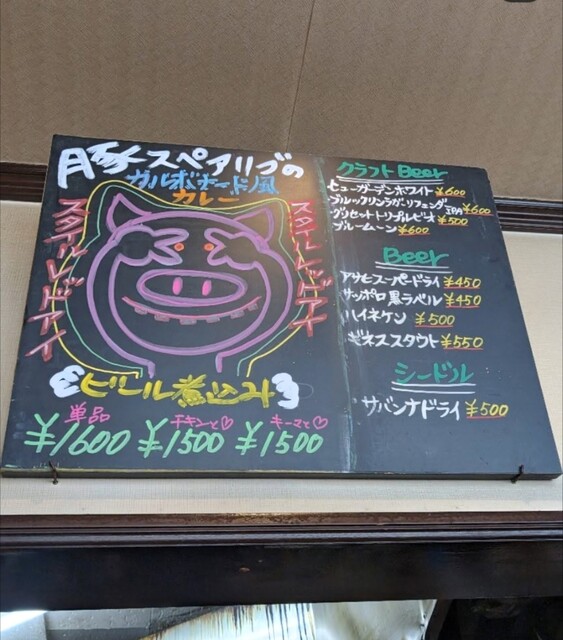 豚スペアリブの
カルボナード風
カレー
スタイルレッドアイ
スタイルレッドアイ
ビール煮込み
単品 チキンと♡ キーマと♡
¥1600 ¥1500 ¥1500
クラフトBeer
ヒューガーデンホワイト ¥600
ブルックリンラガー・リフェンダーIPA ¥600
グリセットトリプルビオ ¥500
ブルームーン ¥600
Beer
アサヒスーパードライ ¥450
サッポロ黒ラベル ¥450
ハイネケン ¥500
ギネススタウト ¥550
シードル
サバンナドライ ¥500